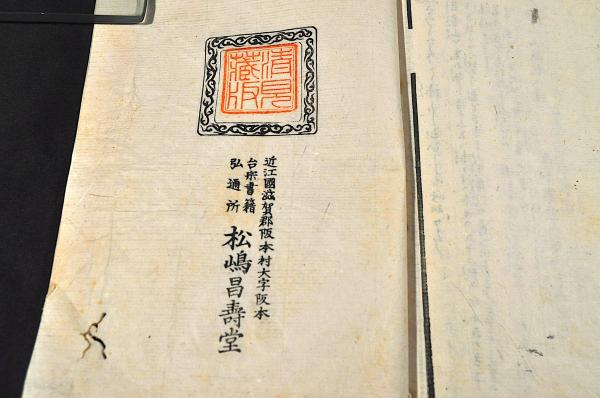 清見
藏版
近江國滋賀郡阪本村大字阪本
台宗書籍
弘通所
松嶋昌壽堂